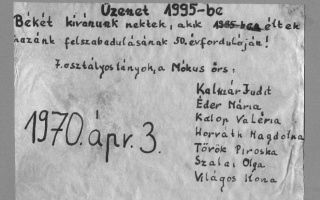 Üzenet 1995-be
Békét kivánunk nektek, akik 1995-ben éltek
hazánk felszabadulásának 50. évfordulóján!
7. osztályos lányok, a Mókus örs:
Kalmár Judit
Éder Mária
Kalop Valéria
Horváth Magdolna
Török Piroska
Szalai Olga
Világos Ilona
1970. ápr. 3.